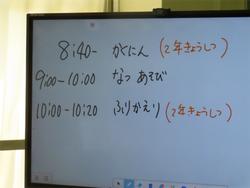 8:40- がにん (2年きょうしつ)
9:00-10:00 なつあそび
10:00-10:20 ふりかえり (2年きょうしつ)